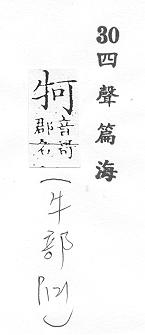 30四聲篇海
牱
音哥
郡名
(牛部P.121)